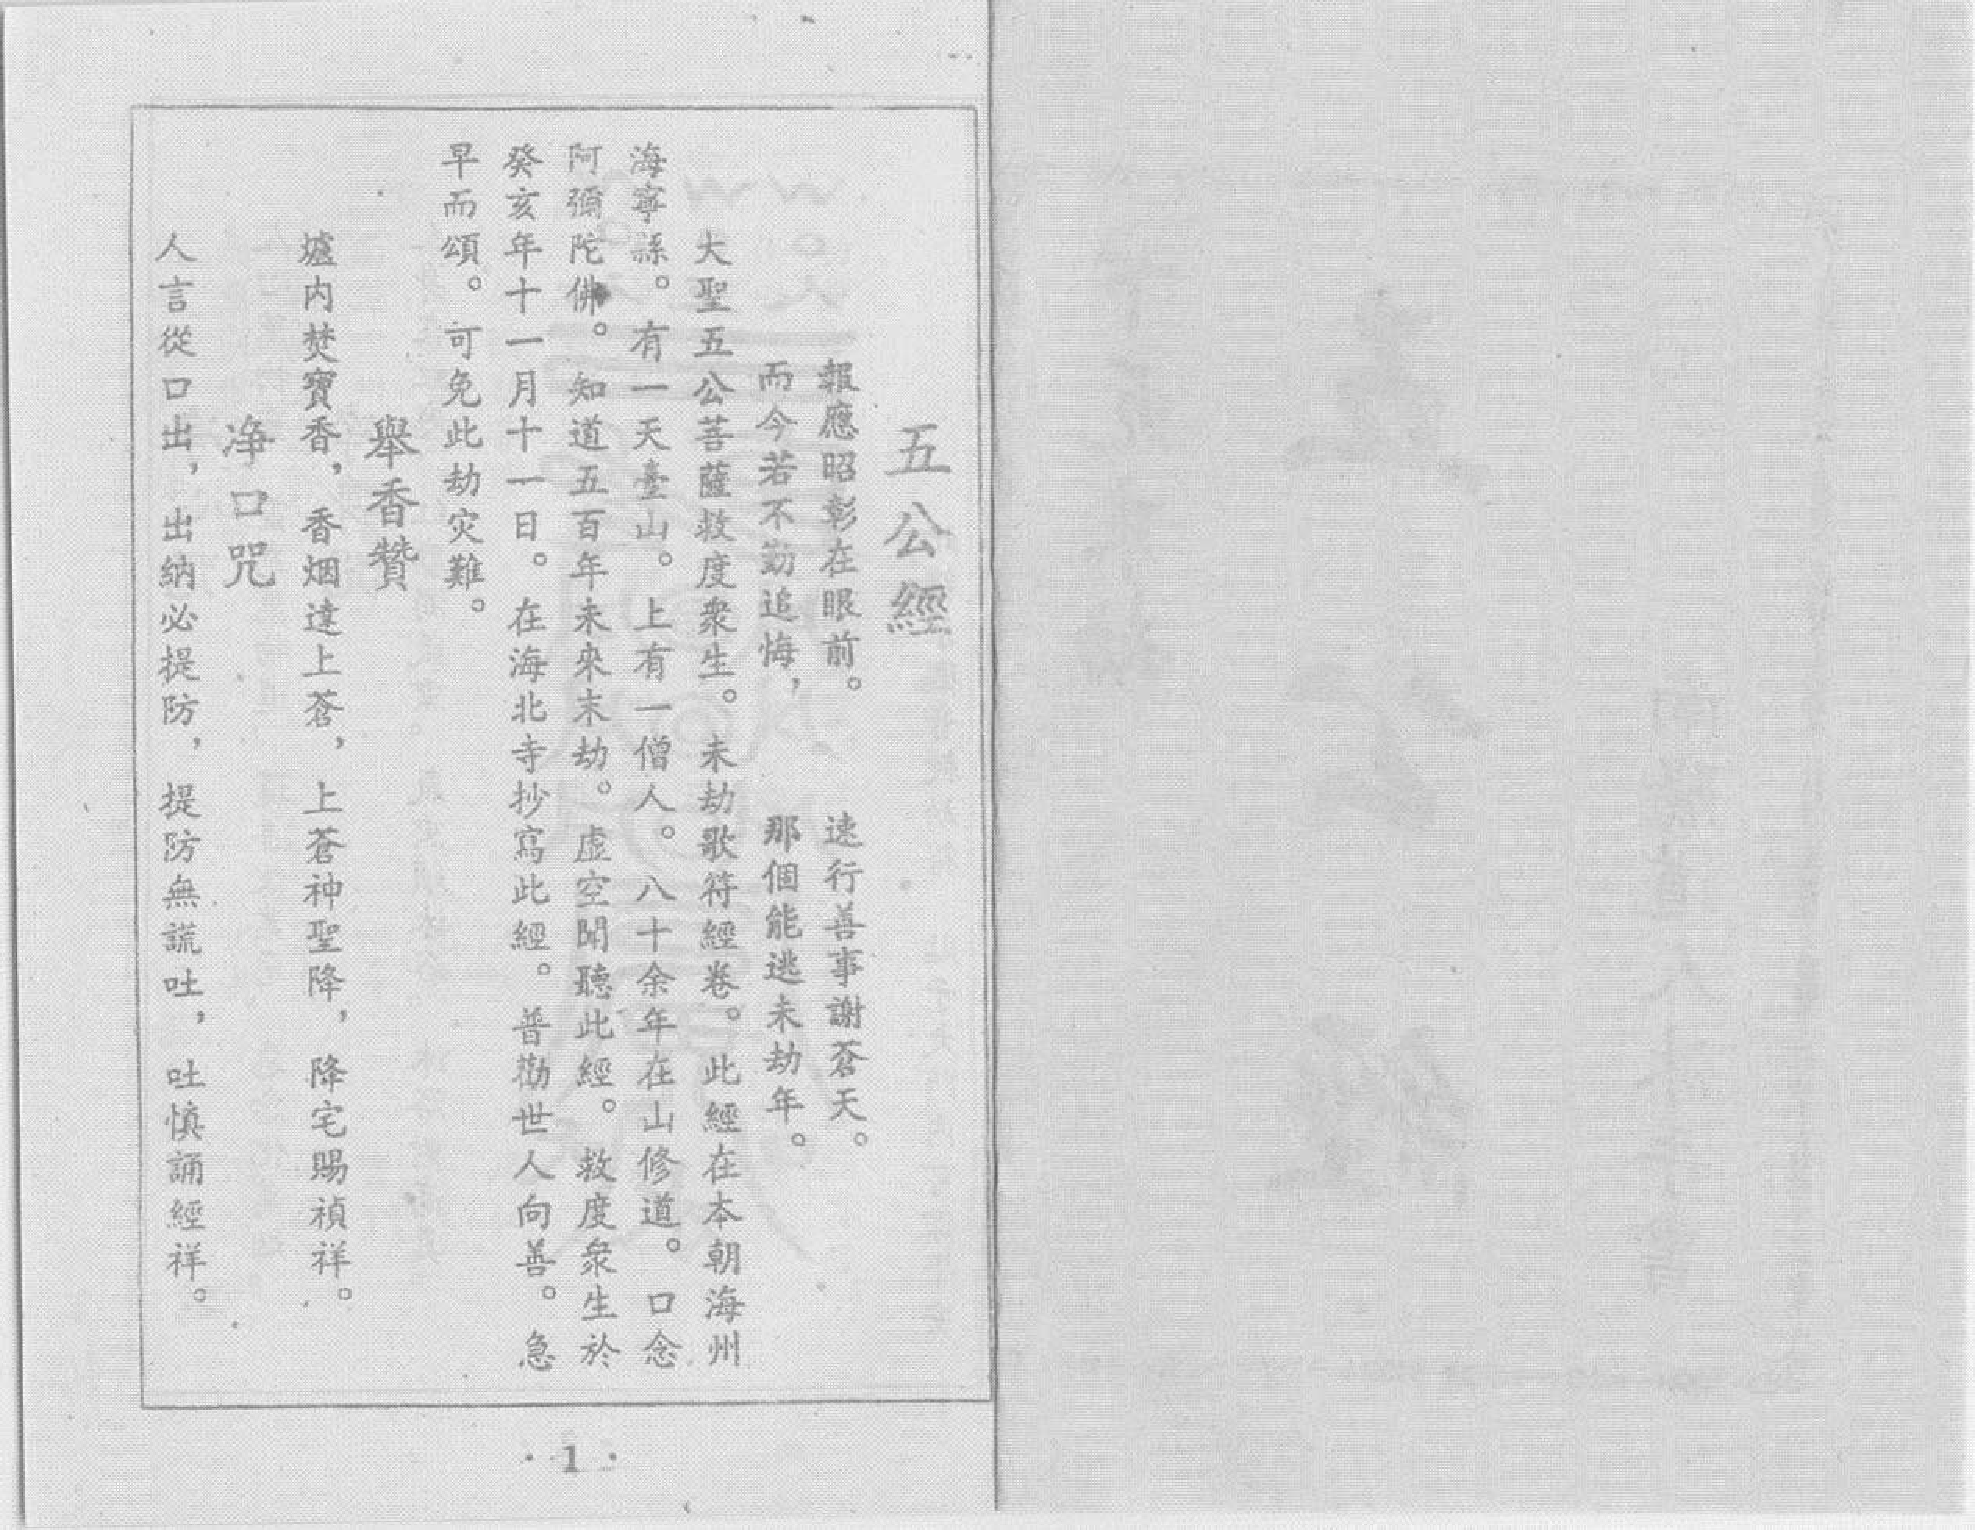 五公經
報應昭彰在眼前。　速行善事謝蒼天。
而今若不勤追悔，　那個能逃末劫年。
大聖五公菩薩救度衆生。末劫歌符經卷。此經在本朝海州
海寧縣。有一天臺山。上有一僧人。八十余年在山修道。口念
阿彌陀佛。知道五百年未來末劫。虛空聞聽此經。救度衆生於
癸亥年十一月十一日。在海北寺抄寫此經。普勸世人向善。急
早而頌。可免此劫灾難。
舉香贊
爐内焚寶香，香烟達上蒼，上蒼神聖降，降宅賜禎祥。
净口咒
人言從口出，出納必提防，提防無謊吐，吐慎誦經祥。
·1·